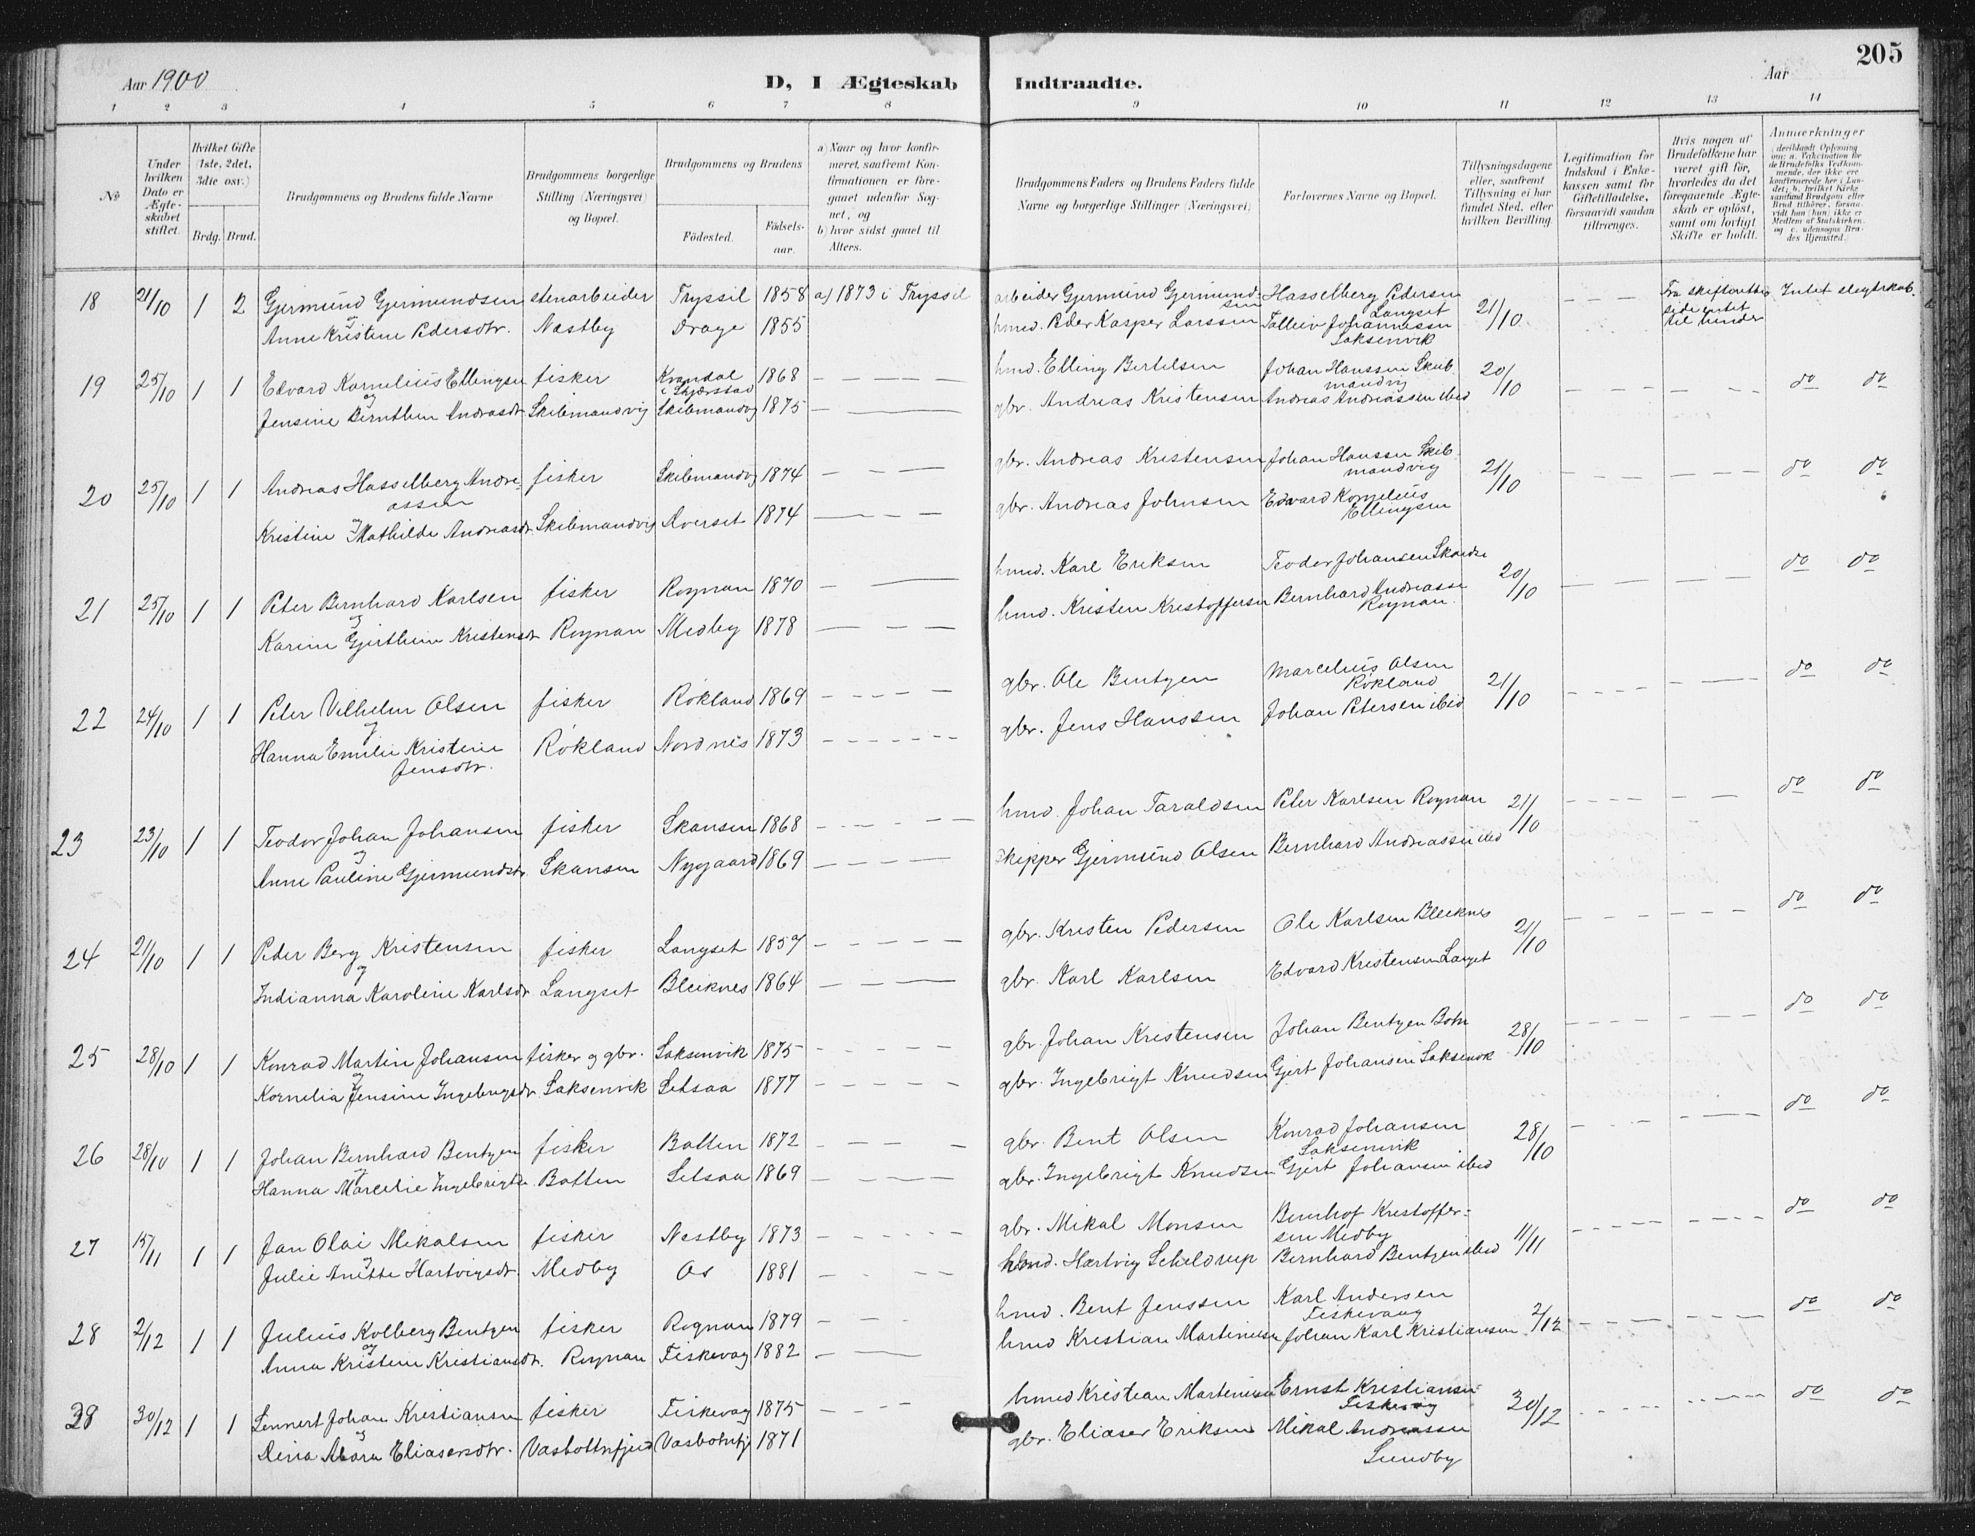 205
Aar 1900
D, I Ægteskab Indtraadte.
Aar
1 2 3 4 5 6 7 8 9 10 11 12 13 14
No
Under hvilken Dato er Ægteskabet stiftet.
Hvilket Gifte (1ste, 2det, 3die osv.)
Brdg. Brud.
Brudgommens og Brudens fulde Navne
Brudgommens borgerlige Stilling (Næringsvei) og Bopæl.
Brudgommens og Brudens
Fødested. Fødsels-aar.
a) Naar og hvor konfirmeret, saafremt Konfirmationen er foregaaet udenfor Sognet, og
b) hvor sidst gaaet til Alters.
Brudgommens Faders og Brudens Faders fulde Navne og borgerlige Stillinger (Næringsvei)
Forlovernes Navne og Bopæl.
Tillysningsdagene eller, saafremt Tillysning ei har fundet Sted, efter hvilken Bevilling
Legitimation for Indskud i Enkekassen samt for Giftetilladelse, forsaavidt saadan tiltrænges.
Hvis nogen af Brudefolkene har været gift før, hvorledes da det foregaaende Ægteskab er opløst, samt om lovligt Skifte er holdt.
Anmærkninger (deriblandt Oplysning om: a. Vaksination for de Brudefolks Vedkommende, der ikke ere konfirmerede her i Landet; b. hvilket Kirkesamfund Brudgom eller Brud tilhører, forsaavidt han (hun) ikke er Medlem af Statskirken, og c. udensogns Brudes Hjemsted.)
18 21/10 1 2 Gjermund Gjermundsen stenarbeider Tryssil 1858 a) 1873 i Tryssil arbeider Gjermund Gjermundsen Hasselberg Pedersen Langset 21/10 — — — Fra skifterettens side intet til hinder Intet slegtskab.
og
Anne Kristine Pedersdtr. Næstby Drage 1855 hmd. Peder Kasper Larssen Tolleiv Johannessen Saksenvik
19 25/10 1 1 Edvard Kornelius Ellingsen fisker Kvandal i Skjærstad 1868 — — — — hmd. Elling Bertelsen Johan Hanssen Skibmandvig 20/10 do do
og
Jensine Bernthine Andreasdtr Skibmandvig Skibmandvg 1875 — — — gbr. Andreas Kristensen Andreas Andreassen ibid
20 25/10 1 1 Andreas Hasselberg Andreassen fisker Skibmandvg 1874 — — — gbr. Andreas Kristensen Johan Hanssen Skibmandvig 21/10 do do
og
Kristine Mathilde Andreasdtr. Skibmandvig Averset 1874 — — — gbr. Andreas Johnsen Edvard Kornelius Ellingsen
21 25/10 1 1 Peter Bernhard Karlsen fisker Rognan 1870 — — hmd. Karl Eriksen Teodor Johansen Skansen 20/10 do do
og
Karine Gjerthine Kristensdtr Rognan Medby 1878 — — — hmd. Kristen Kristoffersen Bernhard Andreassen Rognan.
22 24/10 1 1 Peter Vilhelm Olsen fisker Røkland 1869 — — — — gbr. Ole Bentzen Marcelius Olsen Røkland 21/10 do do
og
Hanna Emilie Kristine Jensdtr. Røkland Nordnes 1873 — — — — gbr. Jens Hanssen Johan Petersen ibid
23 23/10 1 1 Teodor Johan Johansen fisker Skansen 1868 — — — — hmd. Johan Taraldsen Peter Karlsen Rognan 21/10 do do
og
Anne Pauline Gjermundsdtr Skansen Nygaard 1869 — — — — skipper Gjermund Olsen Bernhard Andreassen ibid
24 21/10 1 1 Peder Berg Kristensen fisker Langset 1857 — — — — gbr. Kristen Pedersen Ole Karlsen Bleiknes 21/10 do do
og
Indianna Karoline Karlsdtr Langset Bleiknes 1864 — — — gbr. Karl Karlsen Edvard Kristensen Langset
25 28/10 1 1 Konrad Martin Johansen fisker og gbr. Saksenvik 1875 — — — — gbr. Johan Kristensen Johan Bentzen Botn 28/10 do do
og
Kornelia Jensine Ingebrigtsdtr. Saksenvik Setsaa 1877 — — — — gbr. Ingebrigt Knudsen Gjert Johansen Saksenvik
26 28/10 1 1 Johan Bernhard Bentzen fisker Botten 1872 — — — — gbr. Bent Olsen Konrad Johansen Saksenvik 28/10 do do
og
Hanna Marcelie Ingebrigtsdtr. Botten Setsaa 1869 — — — gbr. Ingebrigt Knudsen Gjert Johansen ibid
27 15/11 1 1 Jan Olai Mikalsen fisker Nestby 1873 — — — — gbr. Mikal Monsen Bernhof Kristoffersen Medby 11/11 do do
og
Julie Anette Hartvigsdtr. Medby Os 1881 — — — — hmd. Hartvig Scheldrup Bernhard Bentzen ibid
28 2/12 1 1 Julius Kolberg Bentzen fisker Rognan 1879 — — — hmd. Bent Jenssen Karl Andersen Fiskevaag 2/12 do do
og
Anna Kristine Kristiansdtr. Rognan Fiskevag 1882 — — hmd Kristian Martinussen Johan Karl Kristiansen
38 30/12 1 1 Lennert Johan Kristiansen fisker Fiskevag 1875 — — — hmd Kristian Martinussen Ernst Kristiansen Fiskevag 30/12 do do
og
Rina Abora Eliasersdtr. Vasbottnfjeld Vasbotnfj 1871 gbr. Eliaser Eriksen Mikal Andreassen Sundby